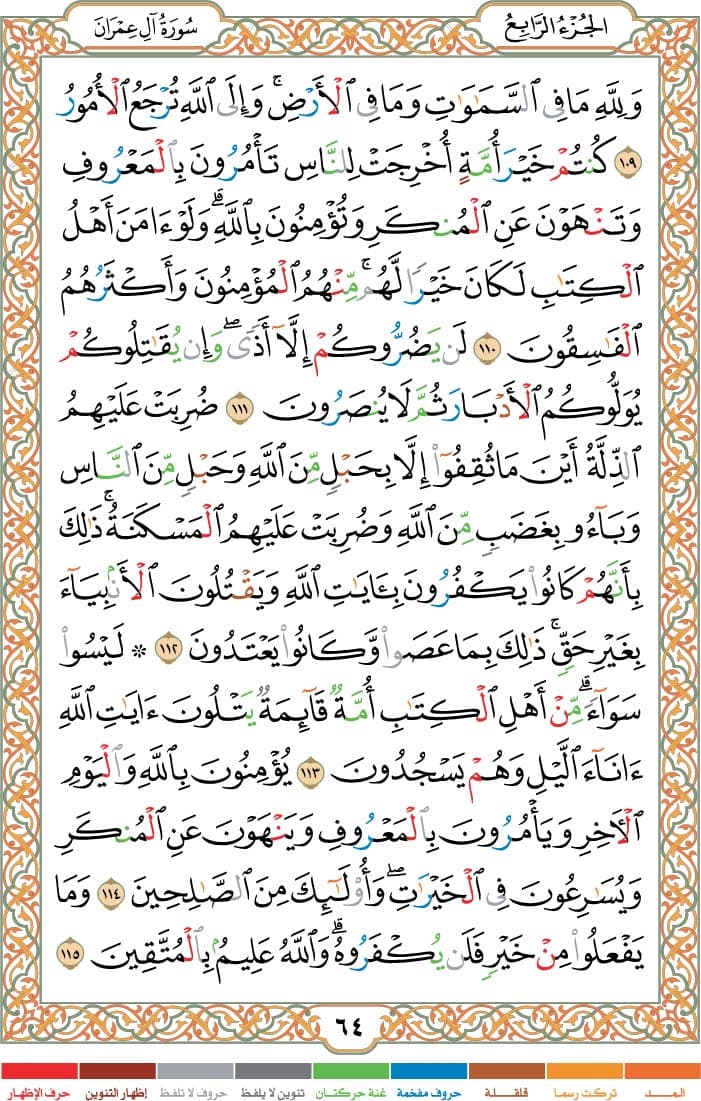 الجُزْءُ الرَّابِعُ
سُورَةُ آلِ عِمْرَانَ
وَلِلَّهِ مَا فِي ٱلسَّمَٰوَٰتِ وَمَا فِي ٱلْأَرْضِۚ وَإِلَى ٱللَّهِ تُرْجَعُ ٱلْأُمُورُ
١٠٩ كُنتُمْ خَيْرَ أُمَّةٍ أُخْرِجَتْ لِلنَّاسِ تَأْمُرُونَ بِٱلْمَعْرُوفِ
وَتَنْهَوْنَ عَنِ ٱلْمُنكَرِ وَتُؤْمِنُونَ بِٱللَّهِۗ وَلَوْ ءَامَنَ أَهْلُ
ٱلْكِتَٰبِ لَكَانَ خَيْرًا لَّهُمۚ مِّنْهُمُ ٱلْمُؤْمِنُونَ وَأَكْثَرُهُمُ
ٱلْفَٰسِقُونَ ١١٠ لَن يَضُرُّوكُمْ إِلَّآ أَذًىۖ وَإِن يُقَٰتِلُوكُمْ
يُوَلُّوكُمُ ٱلْأَدْبَارَ ثُمَّ لَا يُنصَرُونَ ١١١ ضُرِبَتْ عَلَيْهِمُ
ٱلذِّلَّةُ أَيْنَ مَا ثُقِفُوٓا۟ إِلَّا بِحَبْلٍ مِّنَ ٱللَّهِ وَحَبْلٍ مِّنَ ٱلنَّاسِ
وَبَآءُو بِغَضَبٍ مِّنَ ٱللَّهِ وَضُرِبَتْ عَلَيْهِمُ ٱلْمَسْكَنَةُۚ ذَٰلِكَ
بِأَنَّهُمْ كَانُوا۟ يَكْفُرُونَ بِـَٔايَٰتِ ٱللَّهِ وَيَقْتُلُونَ ٱلْأَنۢبِيَآءَ
بِغَيْرِ حَقٍّۚ ذَٰلِكَ بِمَا عَصَوا۟ وَّكَانُوا۟ يَعْتَدُونَ ١١٢ ۞ لَيْسُوا۟
سَوَآءًۗ مِّنْ أَهْلِ ٱلْكِتَٰبِ أُمَّةٌ قَآئِمَةٌ يَتْلُونَ ءَايَٰتِ ٱللَّهِ
ءَانَآءَ ٱلَّيْلِ وَهُمْ يَسْجُدُونَ ١١٣ يُؤْمِنُونَ بِٱللَّهِ وَٱلْيَوْمِ
ٱلْـَٔاخِرِ وَيَأْمُرُونَ بِٱلْمَعْرُوفِ وَيَنْهَوْنَ عَنِ ٱلْمُنكَرِ
وَيُسَٰرِعُونَ فِي ٱلْخَيْرَٰتِۖ وَأُو۟لَٰٓئِكَ مِنَ ٱلصَّٰلِحِينَ ١١٤ وَمَا
يَفْعَلُوا۟ مِنْ خَيْرٍ فَلَن يُكْفَرُوهُۗ وَٱللَّهُ عَلِيمٌۢ بِٱلْمُتَّقِينَ ١١٥
٦٤
المـــد
تركت رسما
قلقـلـة
حروف مفخمة
غنة حركتان
تنوين لا يلفظ
حروف لا تلفظ
إظهار التنوين
حرف الإظهار